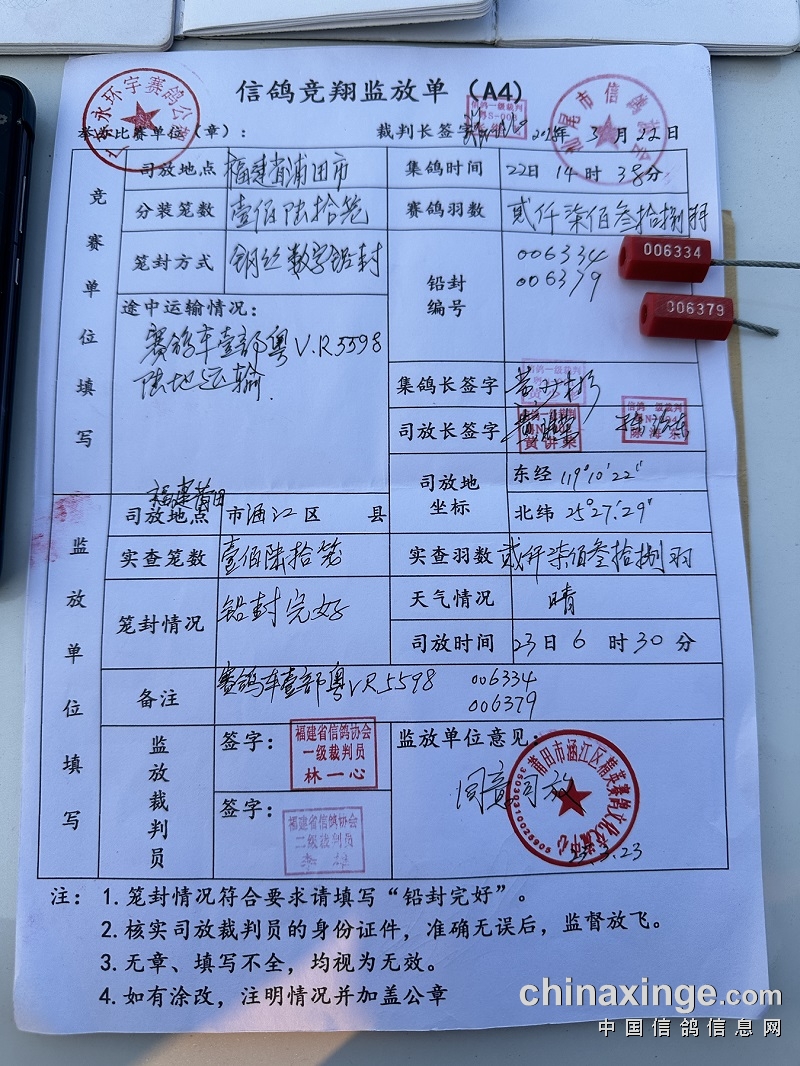 信鸽竞翔监放单（A4）
举办比赛单位（章）： 裁判长签字 年 3 月 22 日
竞赛单位填写
司放地点 福建省浦田市 集鸽时间 22日 14 时 38分
分装笼数 壹佰陆拾笼 赛鸽羽数 贰仟柒佰叁拾捌羽
笼封方式 钢丝数字铅封 铅封编号 006334
006379
006334
006379
途中运输情况：
赛鸽车壹部粤V.R5598
陆地运输.
集鸽长签字
司放长签字
司放地坐标 东经 119°10′22″
北纬 25°27′29″
监放单位填写
福建莆田
司放地点 市涵江区 县
实查笼数 壹佰陆拾笼 实查羽数 贰仟柒佰叁拾捌羽
笼封情况 铅封完好 天气情况 晴
司放时间 23日 6 时 30 分
备注 赛鸽车壹部粤VR5598 006334
006379
监放裁判员
签字： 福建省信鸽协会
一级裁判员
林一心
签字： 福建省信鸽协会
二级裁判员
监放单位意见：
同意司放
莆田市涵江区精英赛鸽文化交流中心
35030310025905
23.3.23
注： 1.笼封情况符合要求请填写“铅封完好”。
2.核实司放裁判员的身份证件，准确无误后，监督放飞。
3.无章、填写不全，均视为无效。
4.如有涂改，注明情况并加盖公章
chinaxinge.com
中国信鸽信息网